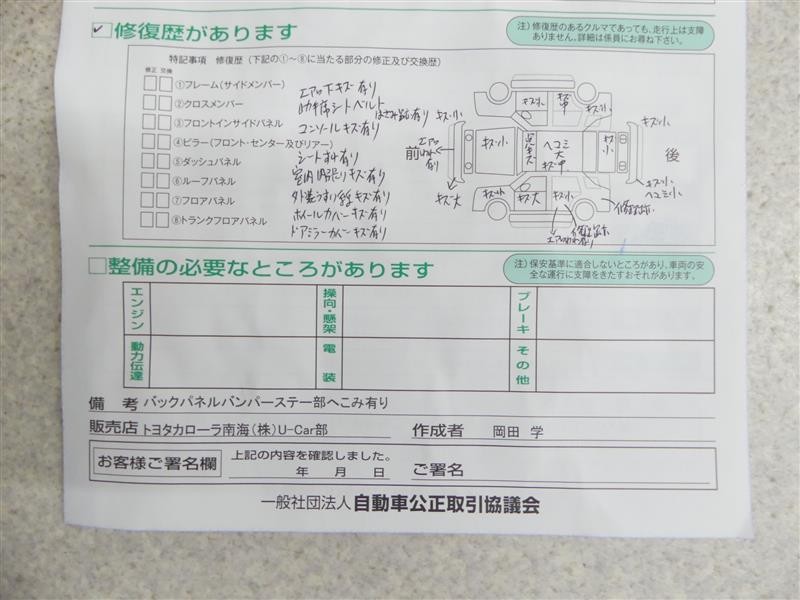 ✓修復歴があります
注）修復歴のあるクルマであっても、走行上は支障
ありません。詳細は係員にお尋ね下さい。
特記事項 修復歴（下記の①～⑧に当たる部分の修正及び交換歴）
修正 交換
①フレーム（サイドメンバー）
②クロスメンバー
③フロントインサイドパネル
④ピラー（フロント・センター及びリアー）
⑤ダッシュパネル
⑥ルーフパネル
⑦フロアパネル
⑧トランクフロアパネル
エアロ下キズ有り
助手席シートベルト
はさみ跡有り
コンソールキズ有り
シートすれ有り
室内内張りキズ有り
外装うすい線キズ有り
ホイールカバーキズ有り
ドアミラーカバーキズ有り
前
エアロ
われ
有り
キズ小
キズ大
キズ小
キズ小
キズ中
キズ小
ヘコミ
大
キズ中
キズ小
キズ小
後
キズ小
ヘコミ小
キズ小
キズ大
キズ小
修理跡
修理跡
整備の必要なところがあります
注）保安基準に適合しないところがあり、車両の安
全な運行に支障をきたすおそれがあります。
エンジン
操向・懸架
ブレーキ
動力伝達
電装
その他
備考 バックパネルバンパーステー部へこみ有り
販売店 トヨタカローラ南海（株）U-Car部 作成者 岡田 学
お客様ご署名欄 上記の内容を確認しました。
年 月 日 ご署名
一般社団法人 自動車公正取引協議会